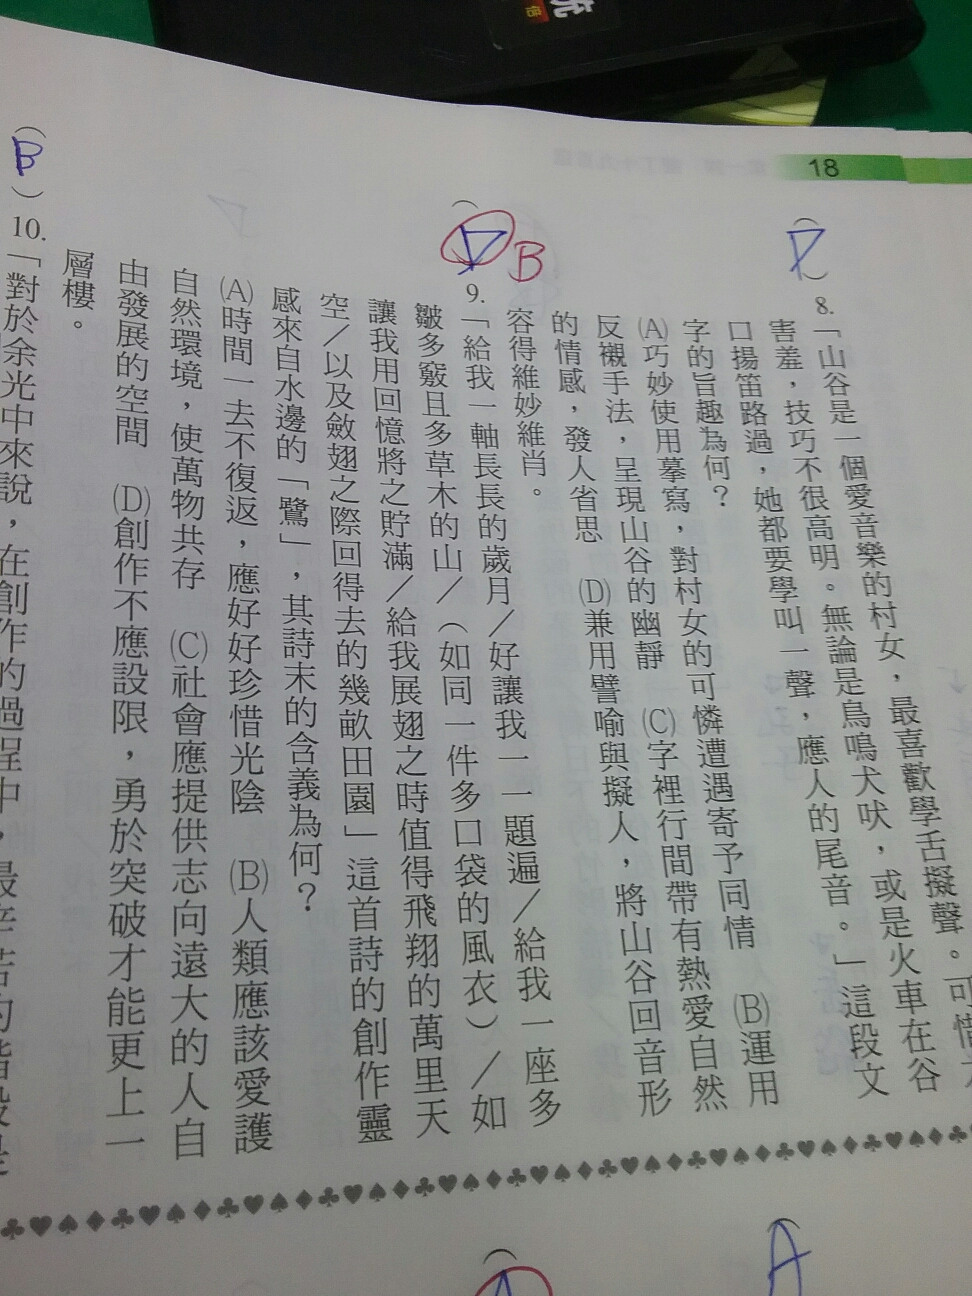 18
(D)
8.「山谷是一個愛音樂的村女，最喜歡學舌擬聲。可惜
害羞，技巧不很高明。無論是鳥鳴犬吠，或是火車在谷
口揚笛路過，她都要學叫一聲，應人的尾音。」這段文
字的旨趣為何？
(A)巧妙使用摹寫，對村女的可憐遭遇寄予同情　(B)運用
反襯手法，呈現山谷的幽靜　(C)字裡行間帶有熱愛自然
的情感，發人省思　(D)兼用譬喻與擬人，將山谷回音形
容得維妙維肖。
(D) B
9.「給我一軸長長的歲月／好讓我一一題遍／給我一座多
皺多竅且多草木的山／（如同一件多口袋的風衣）／如
讓我用回憶將之貯滿／給我展翅之時值得飛翔的萬里天
空／以及斂翅之際回得去的幾畝田園」這首詩的創作靈
感來自水邊的「鷺」，其詩末的含義為何？
(A)時間一去不復返，應好好珍惜光陰　(B)人類應該愛護
自然環境，使萬物共存　(C)社會應提供志向遠大的人自
由發展的空間　(D)創作不應設限，勇於突破才能更上一
層樓。
(B)
10.「對於余光中來說，在創作的過程中，最辛苦的階段是
A